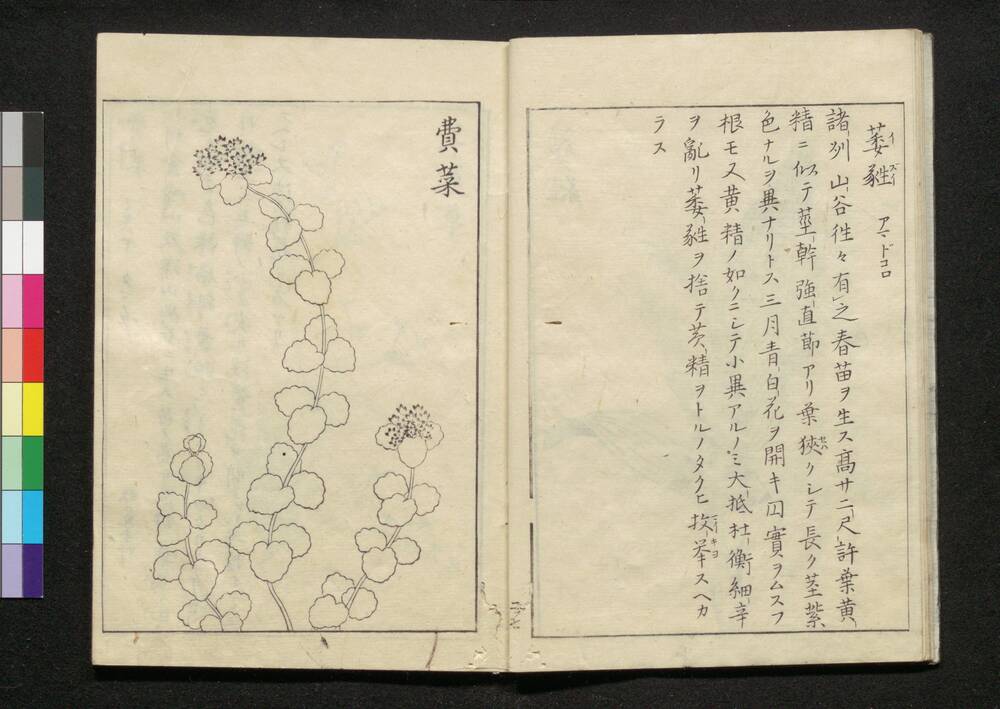 萎㽔 アマドコロ
イ スイ
諸州山谷徃々有之春苗ヲ生ス高サ二尺許葉黄
精ニ似テ莖幹強直節アリ葉狹クシテ長ク莖紫
セハ
色ナルヲ異ナリトス三月青白花ヲ開キ圓實ヲムスフ
根モ又黄精ノ如クニシテ小異アルノミ大抵杜衡細辛
ヲ亂リ萎㽔ヲ捨テ黄精ヲトルノタクヒ枚挙スヘカ
キヨ
ラス
費菜